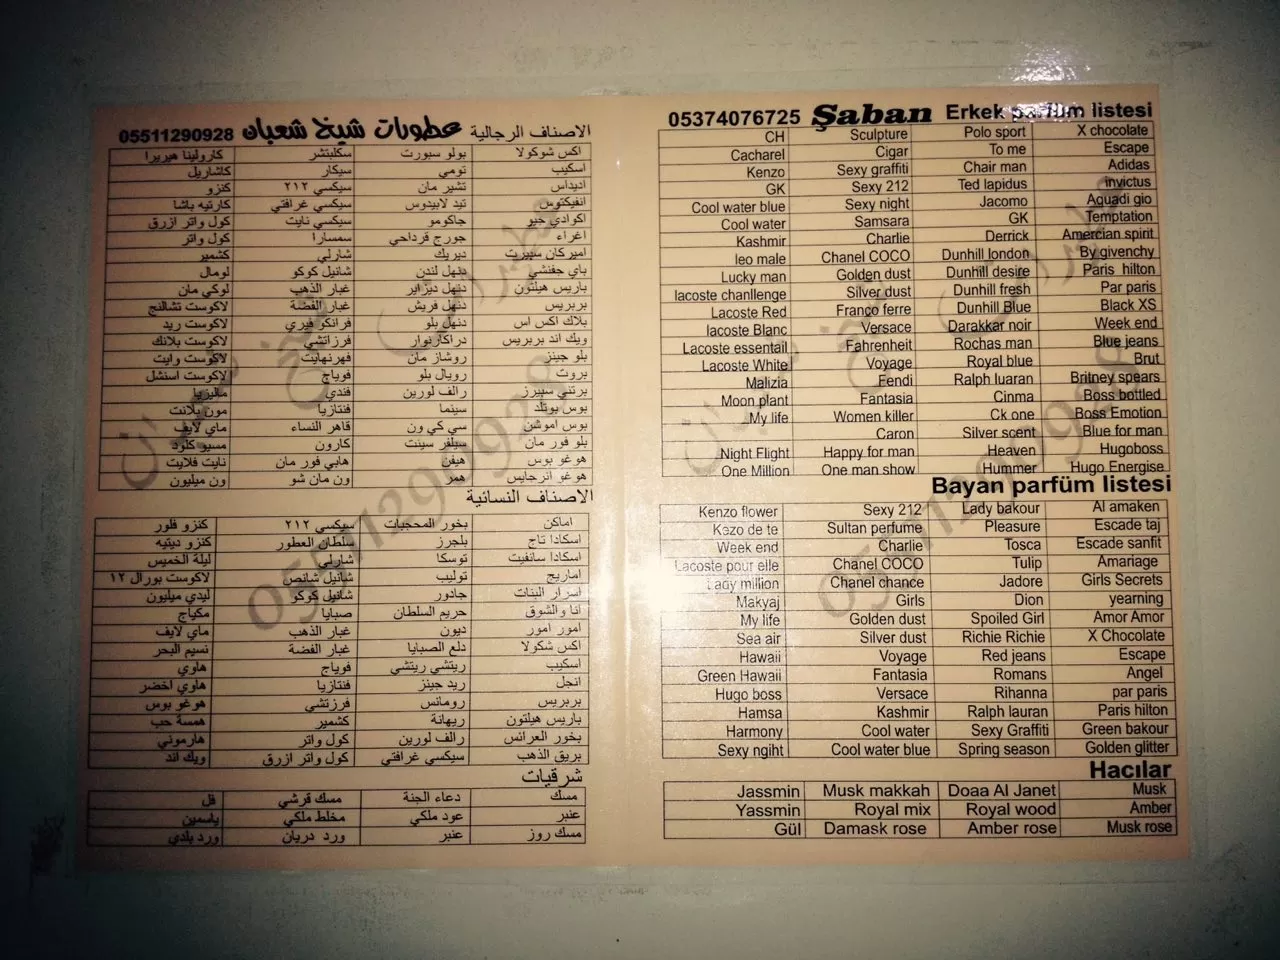 الاصناف الرجالية عطورات شيخ شعبان 05511290928
اكس شوكولا بولو سبورت سكلبتشر كارولينا هيريرا
اسكيب تومي سيكار كاشاريل
اديداس تشير مان سيكسي ٢١٢ كنزو
انفيكتوس تيد لابيدوس سيكسي غرافتي كارتيه باشا
اكوادي جيو جاكومو سيكسي نايت كول واتر ازرق
اغراء جورج قرداحي سمسارا كول واتر
اميركان سبيرت ديريك شارلي كشمير
باي جفنشي دنهل لندن شانيل كوكو لومال
باريس هيلتون دنهل ديزاير غبار الذهب لوكي مان
بربريس دنهل فريش غبار الفضة لاكوست تشالنج
بلاك اكس اس دنهل بلو فرانكو فيري لاكوست ريد
ويك اند بربريس دراكارنوار فرزاتشي لاكوست بلانك
بلو جينز روشاز مان فهرنهايت لاكوست وايت
بروت رويال بلو فوياج لاكوست اسنشل
برتني سبيرز رالف لورين فندي ماليزيا
بوس بوتلد سينما فنتازيا مون بلانت
بوس اموشن سي كي ون قاهر النساء ماي لايف
بلو فور مان سيلفر سينت كارون مسيو كلود
هوغو بوس هيفن هابي فور مان نايت فلايت
هوغو انرجايس همر ون مان شو ون ميليون
الاصناف النسائية
اماكن بخور المحجبات سيكسي ٢١٢ كنزو فلور
اسكادا تاج بلجرز سلطان العطور كنزو ديتيه
اسكادا سانفيت توسكا شارلي ليلة الخميس
اماريج توليب شانيل شانص لاكوست بورال ١٢
اسرار البنات جادور شانيل كوكو ليدي ميليون
انا والشوق حريم السلطان صبايا مكياج
امور امور ديون غبار الذهب ماي لايف
اكس شكولا دلع الصبايا غبار الفضة نسيم البحر
اسكيب ريتشي ريتشي فوياج هاوي
انجل ريد جينز فنتازيا هاوي اخضر
بربريس رومانس فرزتشي هوغو بوس
باريس هيلتون ريهانة كشمير همسة حب
بخور العرائس رالف لورين كول واتر هارموني
بريق الذهب سيكسي غرافتي كول واتر ازرق ويك اند
شرقيات
مسك دعاء الجنة مسك قرشي فل
عنبر عود ملكي مخلط ملكي ياسمين
مسك روز عنبر ورد دريان ورد بلدي
05374076725 Şaban Erkek parfüm listesi
CH Sculpture Polo sport X chocolate
Cacharel Cigar To me Escape
Kenzo Sexy graffiti Chair man Adidas
GK Sexy 212 Ted lapidus invictus
Cool water blue Sexy night Jacomo Aquadi gio
Cool water Samsara GK Temptation
Kashmir Charlie Derrick Amercian spirit
leo male Chanel COCO Dunhill london By givenchy
Lucky man Golden dust Dunhill desire Paris hilton
lacoste chanllenge Silver dust Dunhill fresh Par paris
Lacoste Red Franco ferre Dunhill Blue Black XS
lacoste Blanc Versace Darakkar noir Week end
Lacoste essentail Fahrenheit Rochas man Blue jeans
Lacoste White Voyage Royal blue Brut
Malizia Fendi Ralph luaran Britney spears
Moon plant Fantasia Cinma Boss bottled
My life Women killer Ck one Boss Emotion
Caron Silver scent Blue for man
Night Flight Happy for man Heaven Hugoboss
One Million One man show Hummer Hugo Energise
Bayan parfüm listesi
Kenzo flower Sexy 212 Lady bakour Al amaken
Kezo de te Sultan perfume Pleasure Escade taj
Week end Charlie Tosca Escade sanfit
Lacoste pour elle Chanel COCO Tulip Amariage
Lady million Chanel chance Jadore Girls Secrets
Makyaj Girls Dion yearning
My life Golden dust Spoiled Girl Amor Amor
Sea air Silver dust Richie Richie X Chocolate
Hawaii Voyage Red jeans Escape
Green Hawaii Fantasia Romans Angel
Hugo boss Versace Rihanna par paris
Hamsa Kashmir Ralph lauran Paris hilton
Harmony Cool water Sexy Graffiti Green bakour
Sexy ngiht Cool water blue Spring season Golden glitter
Hacılar
Jassmin Musk makkah Doaa Al Janet Musk
Yassmin Royal mix Royal wood Amber
Gül Damask rose Amber rose Musk rose